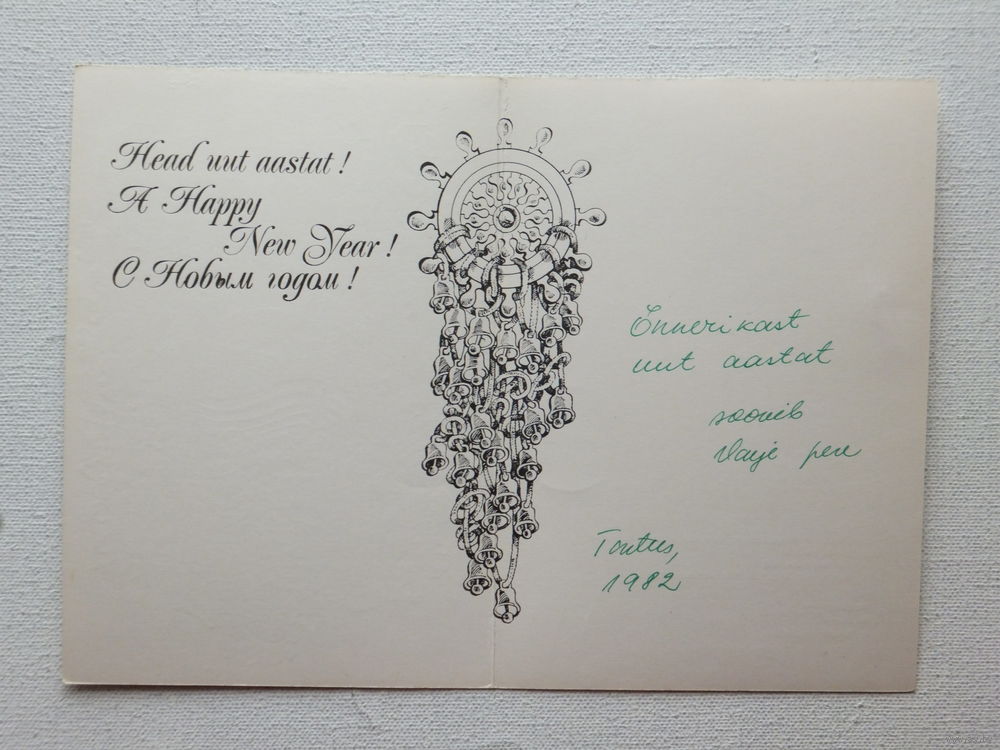 Head uut aastat!
A Happy
New Year!
С Новым годом!
Õnnerikast
uut aastat
soovib
pere
Tartus,
1982